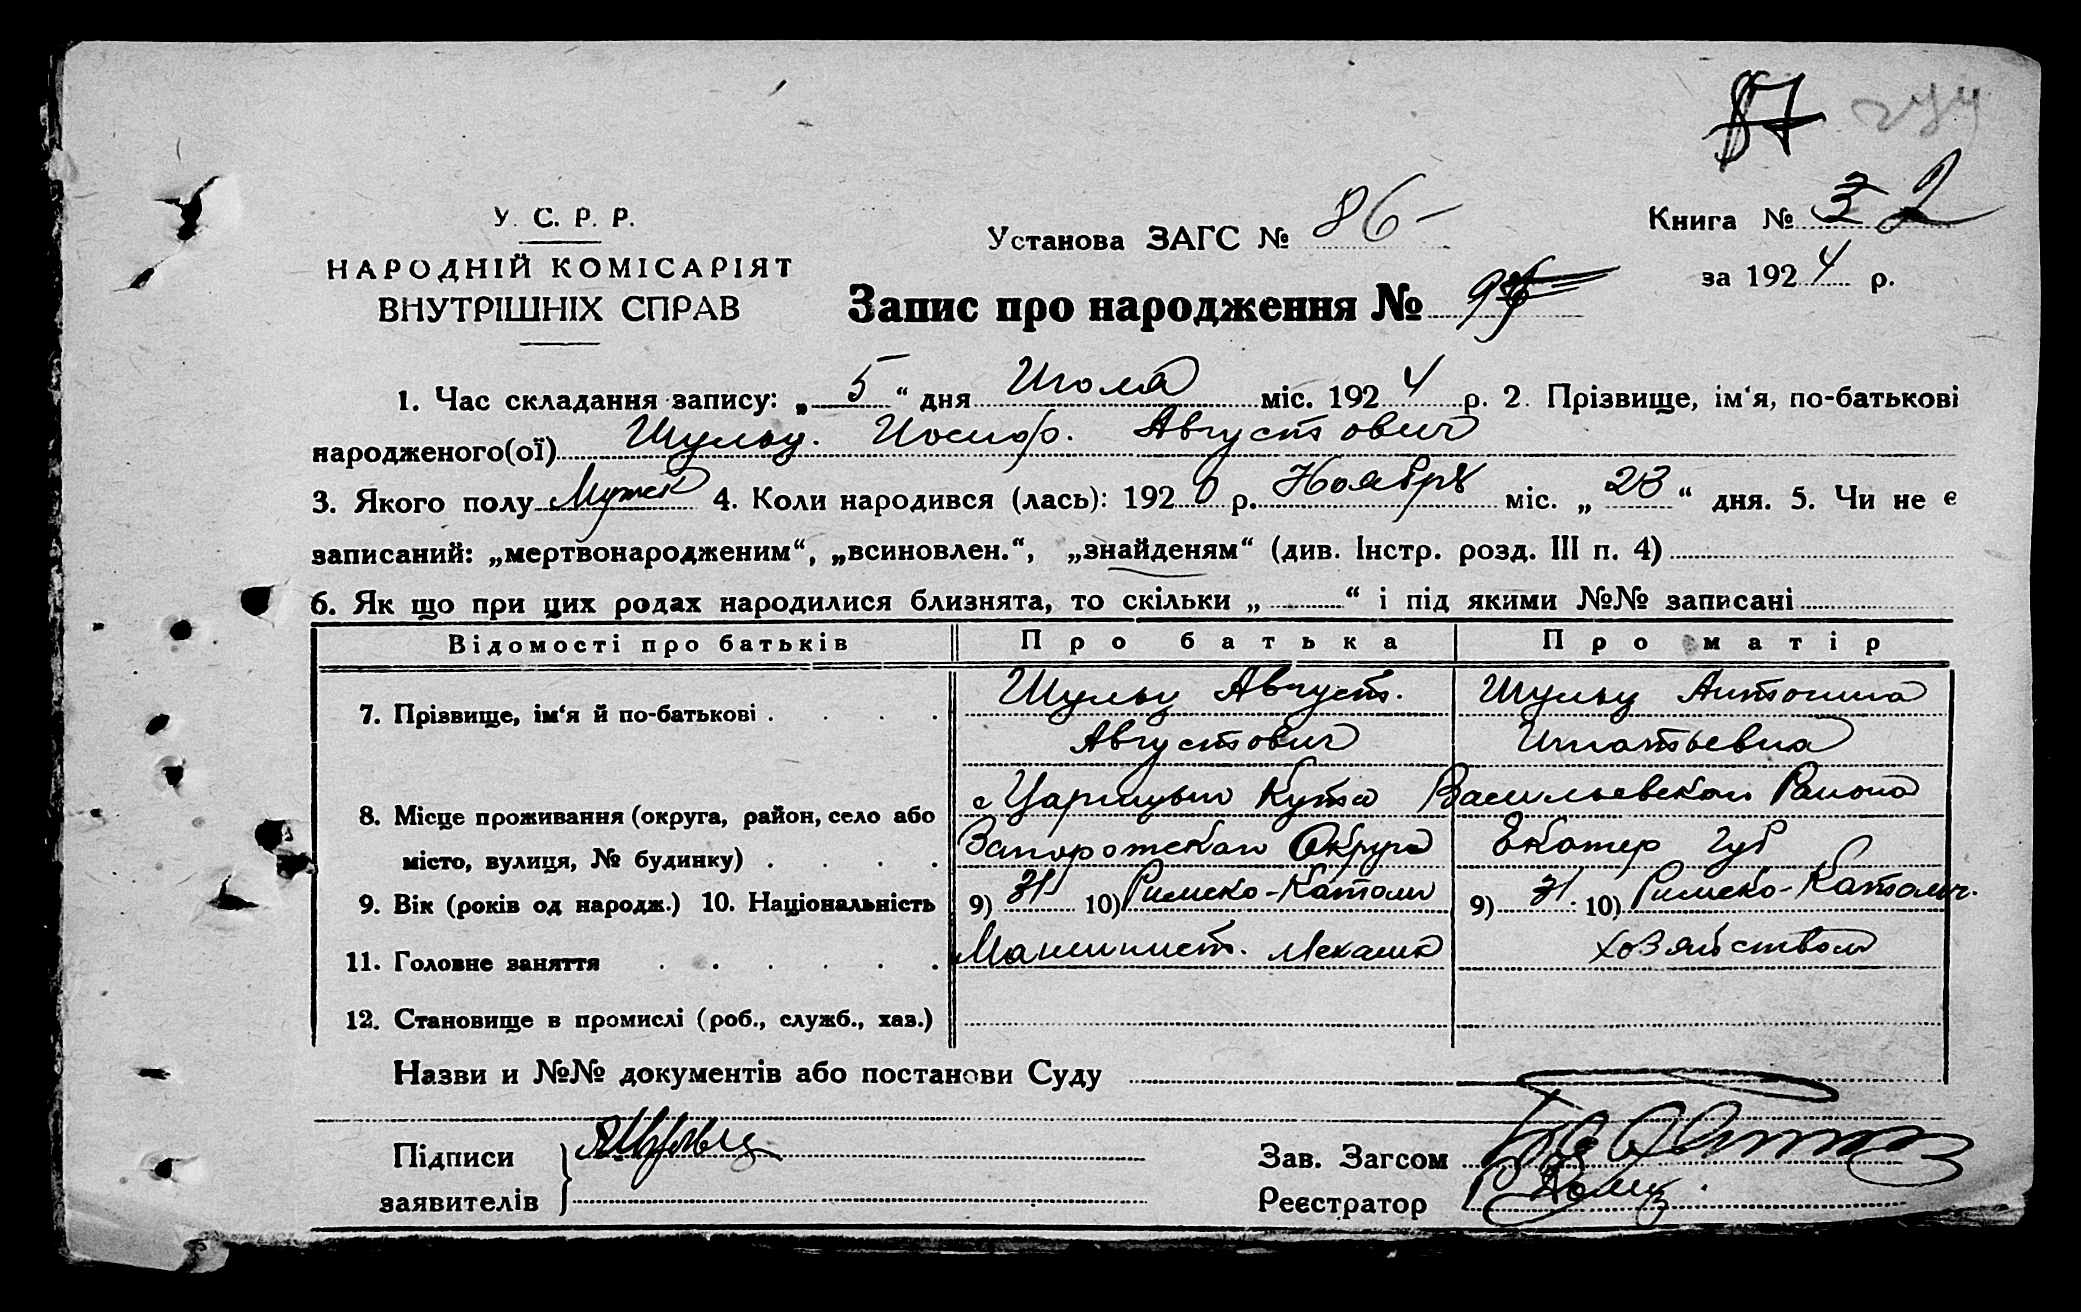 87 274
У. С. Р. Р.
НАРОДНІЙ КОМІСАРІЯТ
ВНУТРІШНІХ СПРАВ
Установа ЗАГС № 86 -
Книга № 3 2
за 1924 р.
Запис про народження №
1. Час складання запису: „ 5 “ дня Июля міс. 1924 р. 2. Прізвище, ім‘я, по-батькові
народженого(ої) Шульц. Иосиф. Августович
3. Якого полу Мужск 4. Коли народився (лась): 1920 р. Ноября міс. „ 23 “ дня. 5. Чи не є
записаний: „мертвонародженим“, „всиновлен.“, „знайденям“ (див. Інстр. розд. III п. 4)
6. Як що при цих родах народилися близнята, то скільки „ “ і під якими №№ записані
Відомості про батьків Про батька Про матір
7. Прізвище, ім‘я й по-батькові . . . . Шульц Август. Шульц Антонина
Августович Игнатьевна
8. Місце проживання (округа, район, село або с Царицын Кута Васильевском Района
місто, вулиця, № будинку) . . . . Запорожского Округа Екатер губ
9. Вік (років од народж.) 10. Національність 9) 31 10) Римско-Католи 9) 31. 10) Римско-Католич.
11. Головне заняття . . . . . . Машинист. Механик хозяйством
12. Становище в промислі (роб., служб., хаз.)
Назви и №№ документів або постанови Суду
Підписи
заявителів
Зав. Загсом
Реєстратор